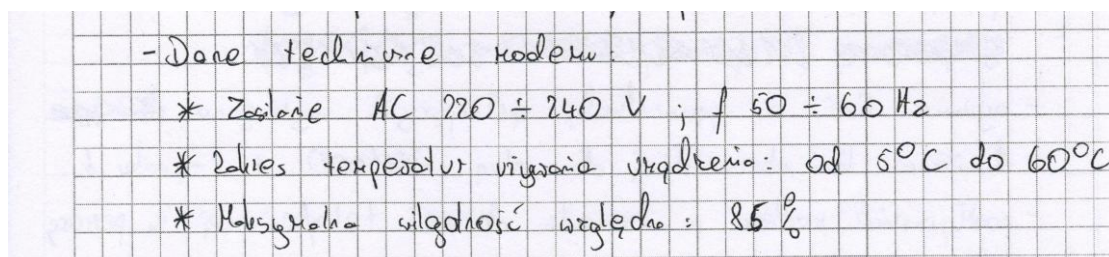 - Dane techniczne modemu:
* Zasilanie AC 220 ÷ 240 V ; f 50 ÷ 60 Hz
* Zakres temperatur używania urządzenia: od 5°C do 60°C
* Maksymalna wilgotność względna: 85 %